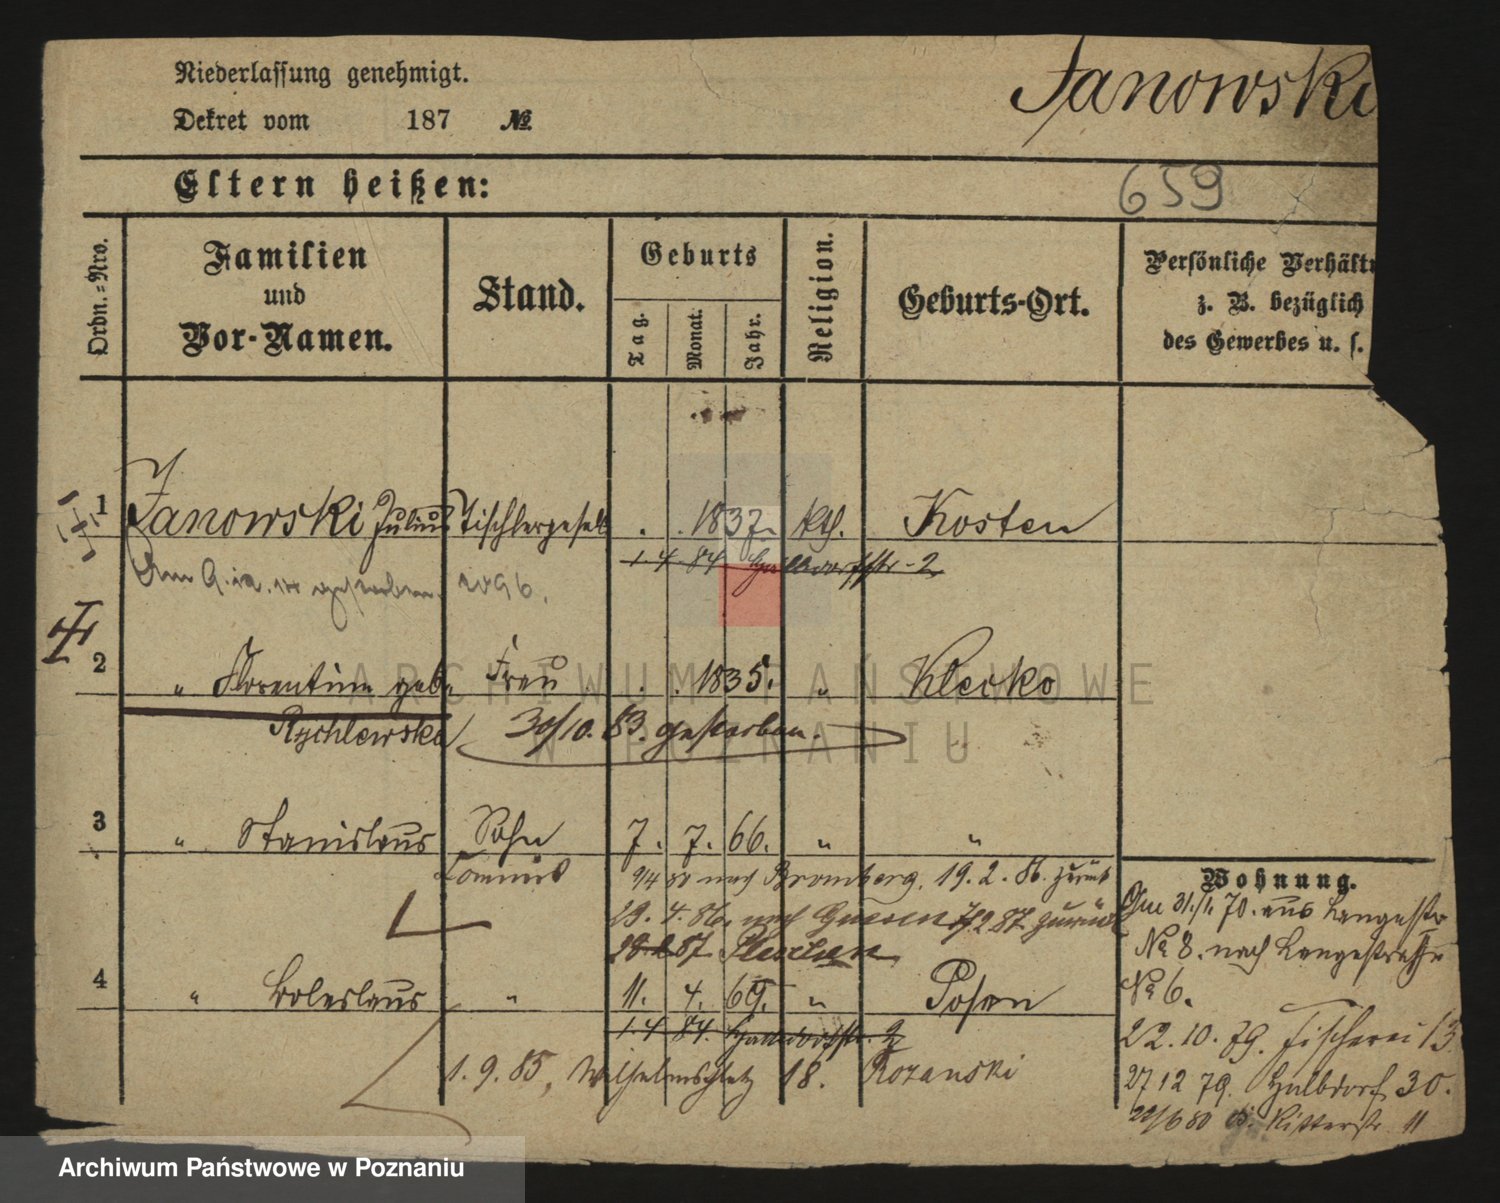 Niederlassung genehmigt.
Dekret vom 187 №
Janowski
Eltern heißen:
659
Ordn.-Nro.
Familien und Vor-Namen.
Stand.
Geburts
Tag.
Monat.
Jahr.
Religion.
Geburts-Ort.
Persönliche Verhält
z. B. bezüglich
des Gewerbes u. s.
1 Janowski Julius Tischlergesell . . 1837. kth. Kosten
1. 4. 84 Halbdorfstr. 2
gestorben 1896.
2 " Florentine geb. Frau . . 1835. " Klecko
Rychlewska 30/10. 83. gestorben.
3 " Stanislaus Sohn 7. 7. 66. " "
Commis 9/4 80 nach Bromberg. 19. 2. 86. zurück
23. 4. 86. nach Gnesen 7/2 87 zurück
87
4 " Boleslaus " 11. 4. 69. " Posen
1. 4 84. Halbdorfstr. 2
1. 9. 85, Wilhelmsplatz 18. Rozanski
Wohnung.
Am 31./1. 70. aus Langestr
№ 8. nach Langestraße
№ 6.
22. 10. 79. Fischerei 13
27 12 79. Halbdorf 30.
28/6 80 Ritterstr. 11
ARCHIWUM PAŃSTWOWE
W POZNANIU
Archiwum Państwowe w Poznaniu